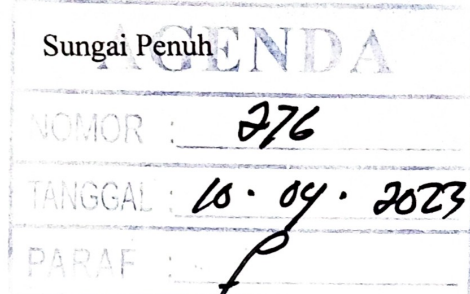 AGENDA
Sungai Penuh
NOMOR : 276
TANGGAL : 10 · 04 · 2023
PARAF :